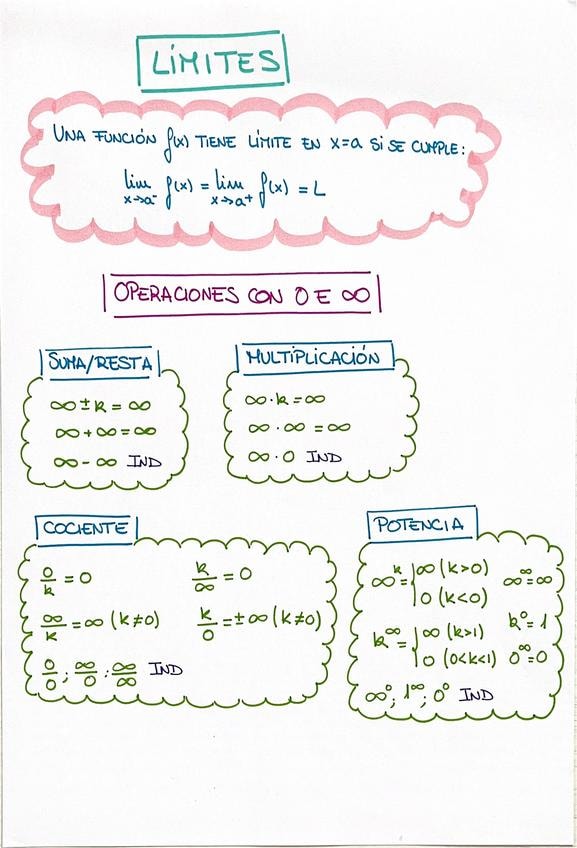 LÍMITES
UNA FUNCIÓN f(x) TIENE LÍMITE EN x=a SI SE CUMPLE:
lim x→a⁻ f(x) = lim x→a⁺ f(x) = L
OPERACIONES CON 0 E ∞
SUMA/RESTA
∞ ± k = ∞
∞ + ∞ = ∞
∞ - ∞ IND
MULTIPLICACIÓN
∞ · k = ∞
∞ · ∞ = ∞
∞ · 0 IND
COCIENTE
0/k = 0 k/∞ = 0
∞/k = ∞ (k≠0) k/0 = ±∞ (k≠0)
0/0 ; ∞/0 ; ∞/∞ IND
POTENCIA
∞^k = { ∞ (k>0) ∞^∞ = ∞
0 (k<0)
k^0 = 1
k^∞ = { ∞ (k>1)
0 (0<k<1) 0^∞ = 0
∞^0 ; 1^∞ ; 0^0 IND